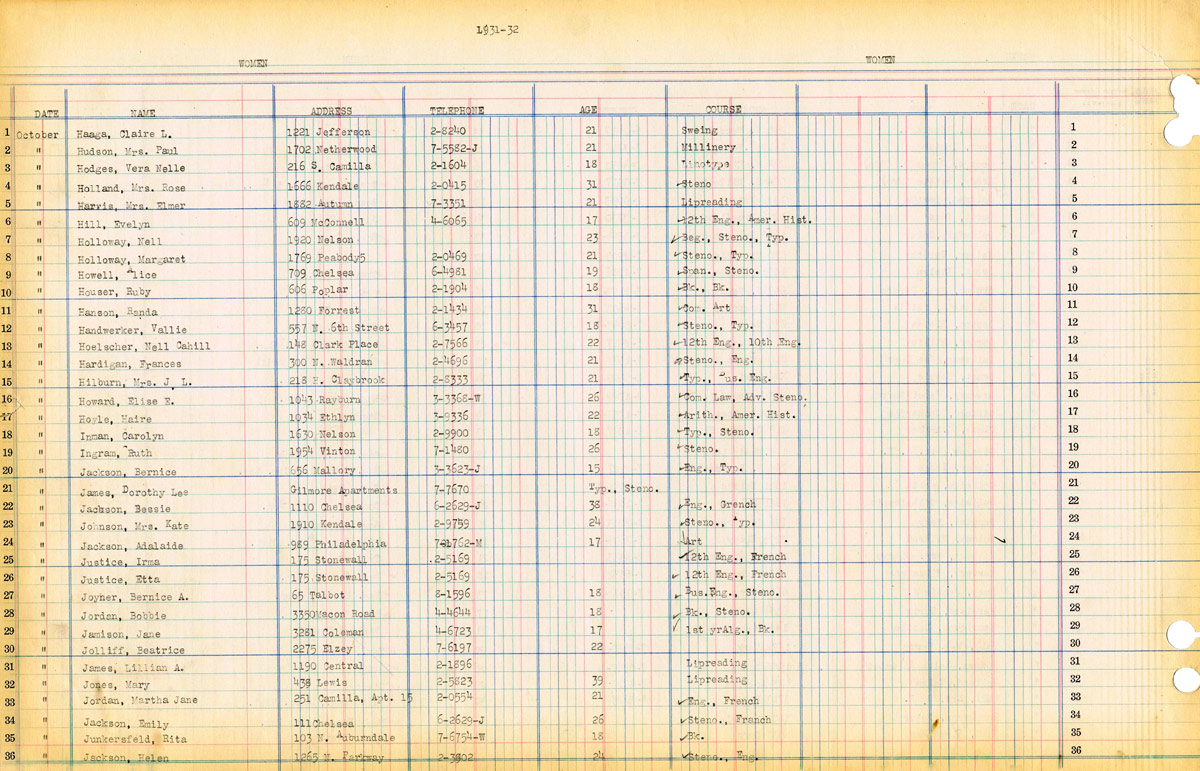 1931-32
WOMEN WOMEN
DATE NAME ADDRESS TELEPHONE AGE COURSE
1 October Haaga, Claire L. 1221 Jefferson 2-8240 21 Sweing 1
2 " Hudson, Mrs. Paul 1702 Netherwood 7-5582-J 21 Millinery 2
3 " Hodges, Vera Nelle 216 S. Camilla 2-1604 18 Linotype 3
4 " Holland, Mrs. Rose 1666 Kendale 2-0415 31 Steno 4
5 " Harris, Mrs. Elmer 1882 Autumn 7-3351 21 Lipreading 5
6 " Hill, Evelyn 609 McConnell 4-6065 17 12th Eng., Amer. Hist. 6
7 " Holloway, Nell 1920 Nelson 23 Beg., Steno., Typ. 7
8 " Holloway, Margaret 1769 Peabody5 2-0469 21 Steno., Typ. 8
9 " Howell, Alice 709 Chelsea 6-4981 19 Span., Steno. 9
10 " Houser, Ruby 606 Poplar 2-1904 18 Bk., Bk. 10
11 " Hanson, Randa 1280 Forrest 2-1434 31 Com. Art 11
12 " Handwerker, Vallie 557 N. 6th Street 6-3457 18 Steno., Typ. 12
13 " Hoelscher, Nell Cahill 148 Clark Place 2-7566 22 12th Eng., 10th Eng. 13
14 " Hardigan, Frances 300 N. Waldran 2-4696 21 Steno., Eng. 14
15 " Hilburn, Mrs. J. L. 218 Claybrook 2-8333 21 Typ., Bus. Eng. 15
16 " Howard, Elise E. 1043 Rayburn 3-3368-W 26 Com. Law, Adv. Steno. 16
17 " Hoyle, Haire 1034 Ethlyn 7-9336 22 Arith., Amer. Hist. 17
18 " Inman, Carolyn 1630 Nelson 2-9900 18 Typ., Steno. 18
19 " Ingram, Ruth 1954 Vinton 7-1480 26 Steno. 19
20 " Jackson, Bernice 656 Mallory 3-3623-J 15 Eng., Typ. 20
21 " James, Dorothy Lee Gilmore Apartments 7-7670 Typ., Steno. 21
22 " Jackson, Bessie 1110 Chelsea 6-2629-J 38 Eng., Grench 22
23 " Johnson, Mrs. Kate 1910 Kendale 2-9759 24 Steno., Typ. 23
24 " Jackson, Adalaide 989 Philadelphia 17 Art 24
25 " Justice, Irma 175 Stonewall 2-5169 12th Eng., French 25
26 " Justice, Etta 175 Stonewall 2-5169 12th Eng., French 26
27 " Joyner, Bernice A. 65 Talbot 8-1596 18 Bus.Eng., Steno. 27
28 " Jordan, Bobbie 3350Macon Road 4-4644 18 Bk., Steno. 28
29 " Jamison, Jane 3281 Coleman 4-6723 17 1st yrAlg., Bk. 29
30 " Jolliff, Beatrice 2275 Elzey 7-6197 22 30
31 " James, Lillian A. 1190 Central 2-1896 Lipreading 31
32 " Jones, Mary 438 Lewis 2-5823 39 Lipreading 32
33 " Jordan, Martha Jane 251 Camilla, Apt. 15 2-0554 21 Eng., French 33
34 " Jackson, Emily 111Chelsea 6-2629-J 26 Steno., Franch 34
35 " Junkersfeld, Rita 103 N. Auburndale 7-6754-W 18 Bk. 35
36 " Jackson, Helen 1265 N. Parkway 2-3802 24 Steno., Eng. 36